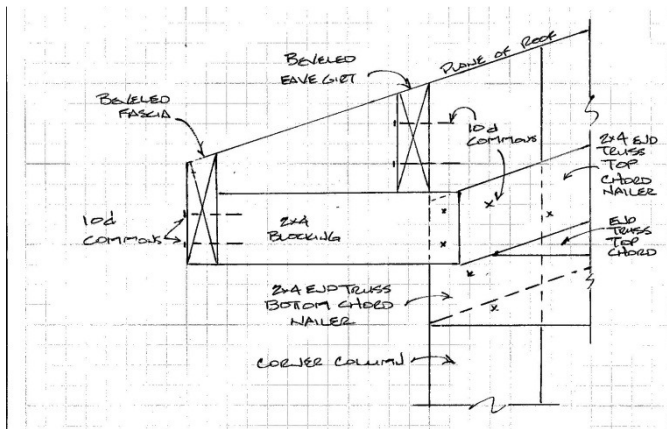 BEVELED
EAVE GIRT
PLANE OF ROOF
BEVELED
FASCIA
10d
COMMONS
2x4 END
TRUSS
TOP
CHORD
NAILER
10d
COMMONS
2x4
BLOCKING
END
TRUSS
TOP
CHORD
2x4 END TRUSS
BOTTOM CHORD
NAILER
CORNER COLUMN